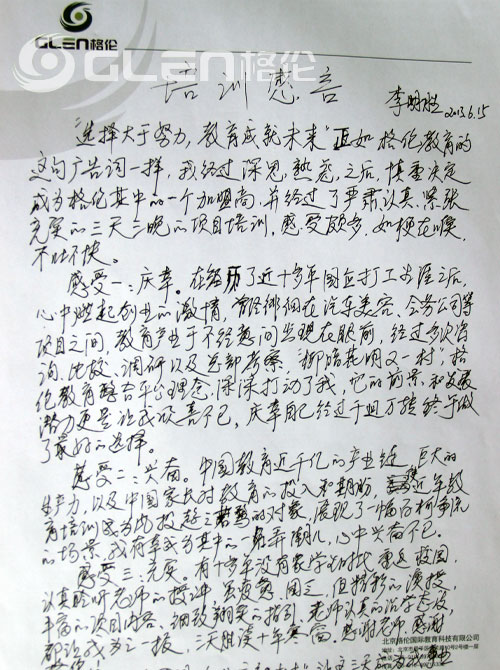 GLEN格伦
GLEN格伦
培训感言
李明胜
2013.6.15
“选择大于努力,教育成就未来”正如格伦教育的
这句广告词一样,我经过深思、熟虑之后,慎重决定
成为格伦其中的一个加盟商,并经过了严肃认真、紧张
充实的三天二晚的项目培训,感受颇多,如梗在喉,
不吐不快。
感受一:庆幸。在经历了近十多年国企打工生涯之后,
心中燃起创业的激情,曾经徘徊在汽车美容、会务公司等
项目之间,教育产业于不经意间出现在眼前,经过多次咨
询、比较、调研以及总部考察,“柳暗花明又一村”,格
伦教育整合平台理念,深深打动了我,它的前景和发展
潜力更是让我吸引不已,庆幸自己经过千回万转终于做
了最好的选择。
感受二:兴奋。中国教育近千亿的产业链,巨大的
生产力,以及中国家长对教育的投入和期盼,近年教
育培训成为投资的对象,展现了一幅百舸争流
的场景,我有幸成为其中的一名弄潮儿,心中兴奋不已。
感受三:充实。有十多年没有象学生时代重返校园,
认真聆听老师的授课,虽疲惫、困乏,但精彩的演授,
丰富的项目内容,细致翔实的指引,老师认真的治学态度,
都让我为之一振,三天胜读十年寒窗,感谢老师,感谢
北京格伦国际教育科技有限公司